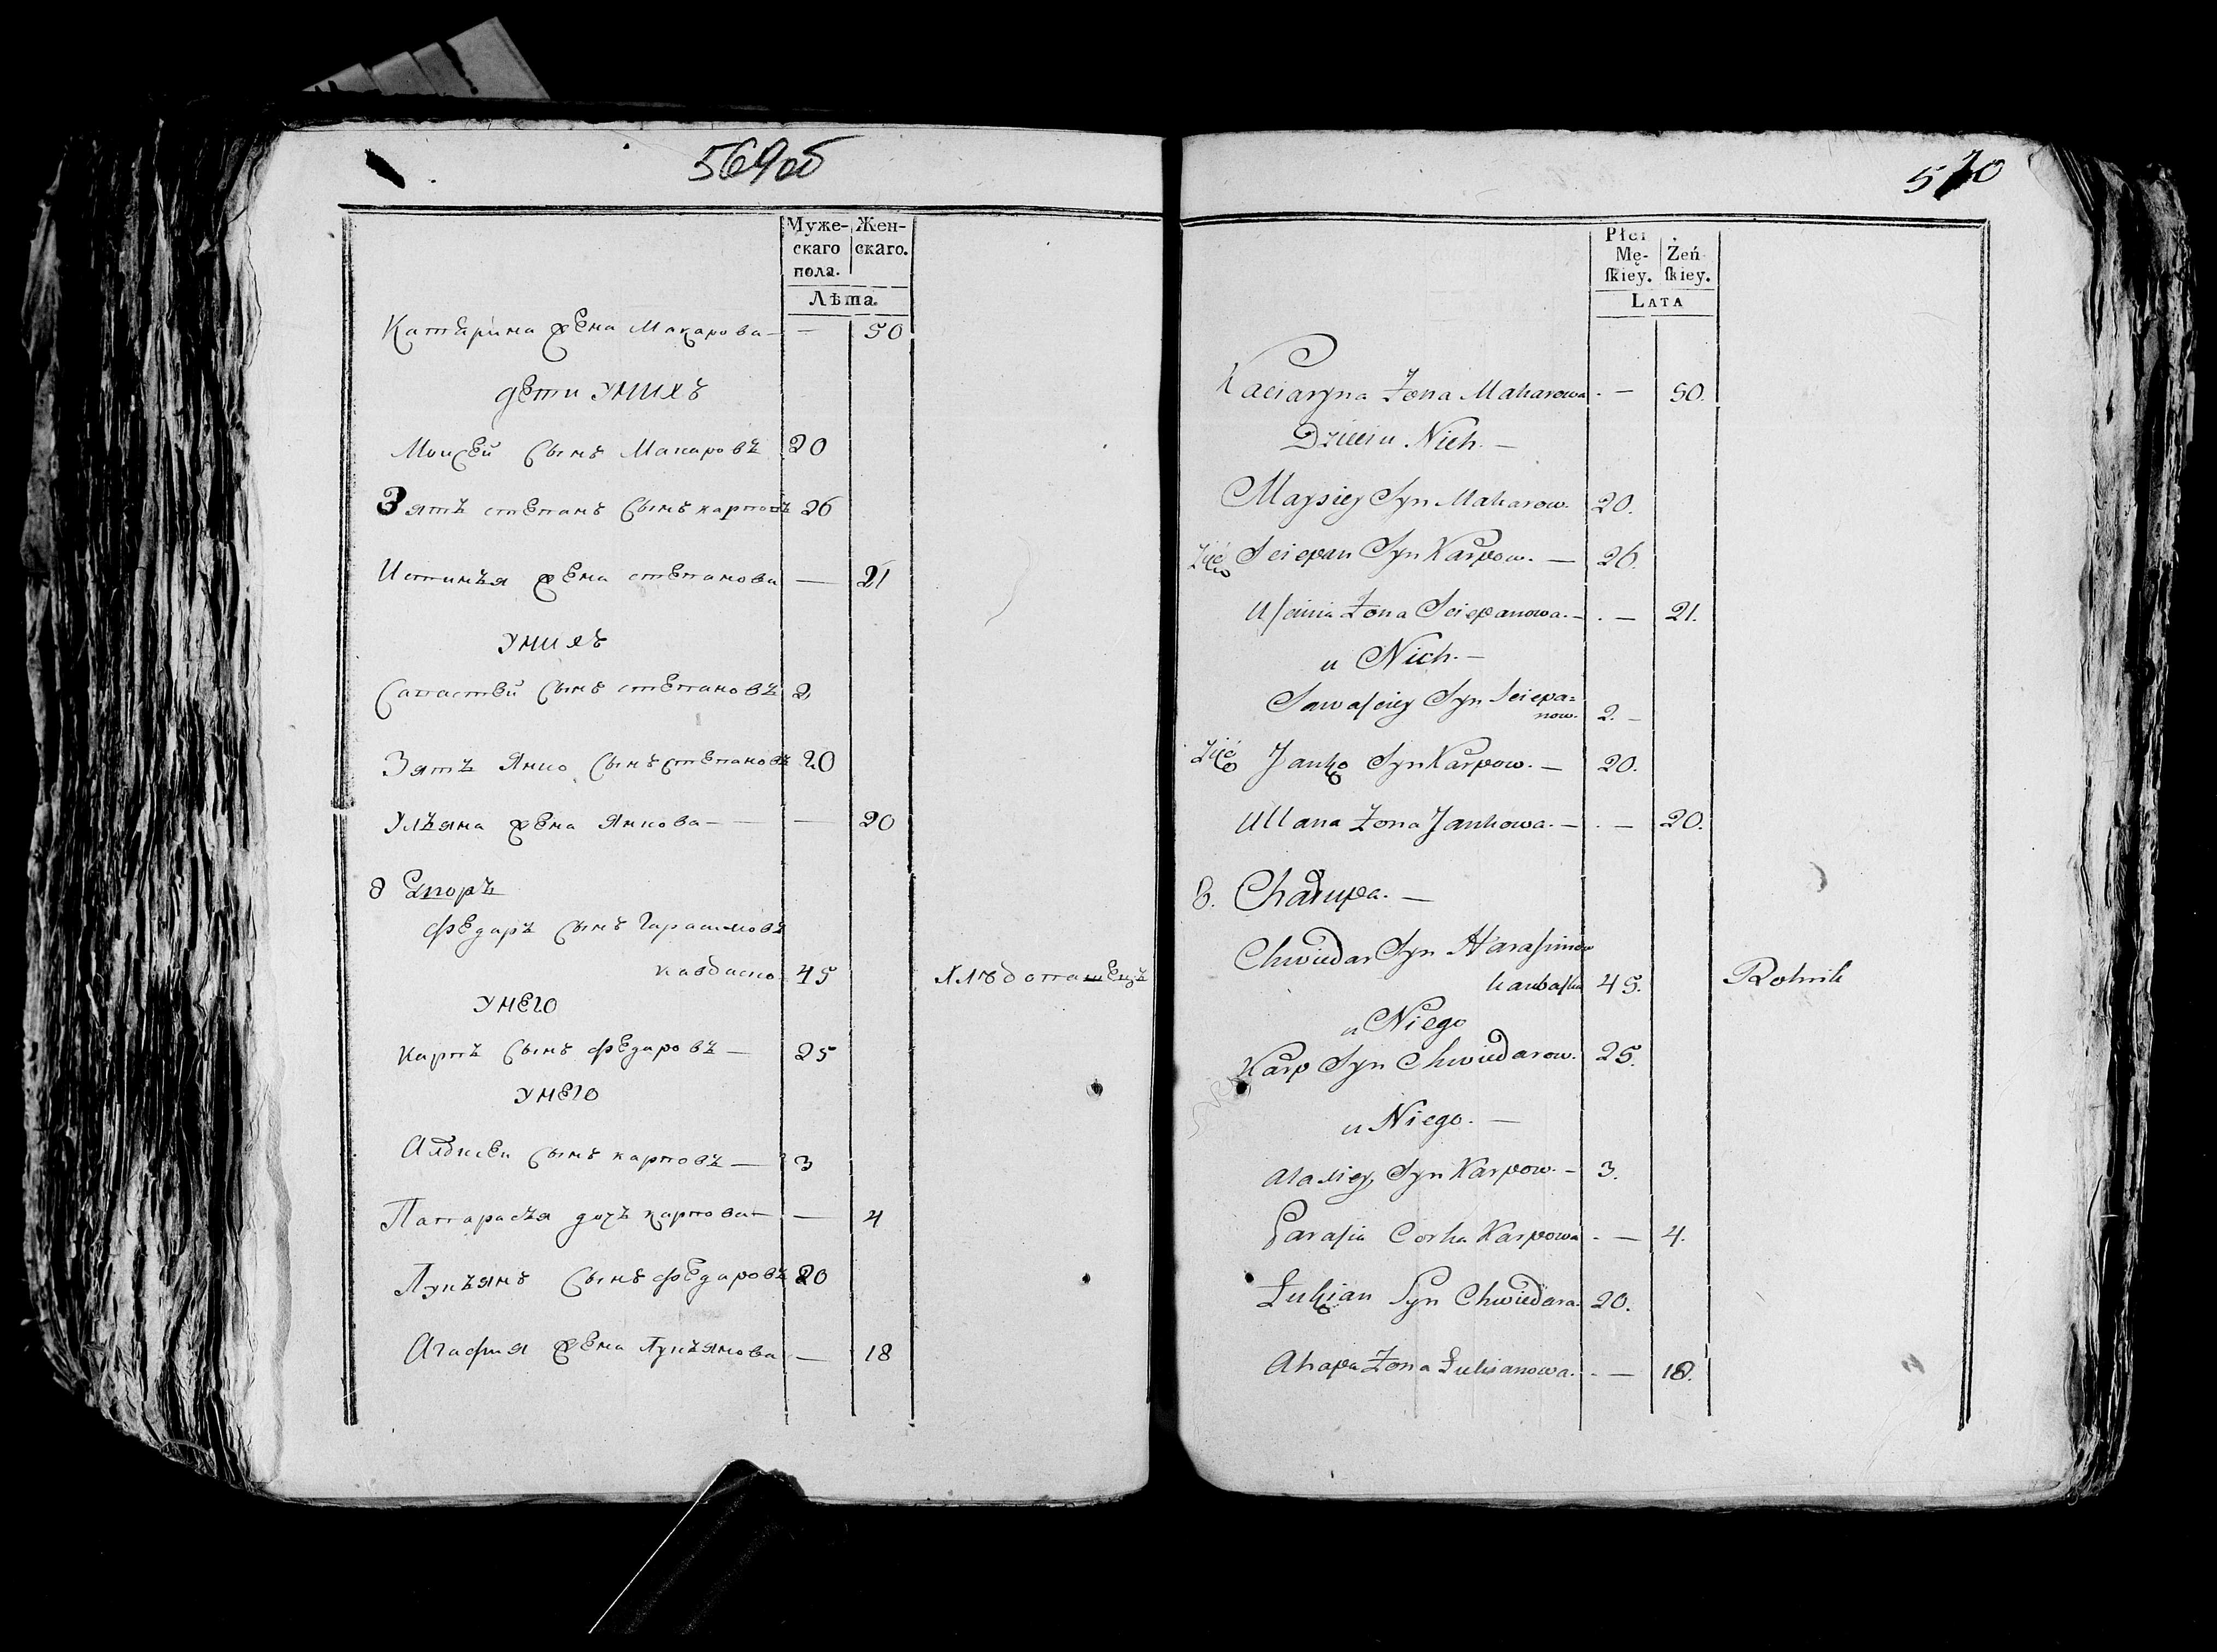 569об
Муже- Жен-
скаго скаго.
пола.
Лѣта.
Катерина жена Макарова — — 50
дети унихъ
Моисей сынъ Макаровъ 20
Зять степанъ сынъ карповъ 26
Истинья жена степанова — 21
унихъ
Савастей сынъ степановъ 2
Зять Янко сынъ степановъ 20
Ульяна жена Янкова — — — 20
8 Двор
Федаръ сынъ Гарасимовъ
45 Хлебопашецъ
унего
карпъ сынъ федаровъ — 25
унего
Алексеи сынъ карповъ — 3
Парасья дочь карпова — — 4
Лукъянъ сынъ федаровъ 20
Агафия жена Лукъянова — 18
570
Płci
Mę- Żeń
ſkiey. ſkiey.
LATA
Kaciaryna Żona Makarowa . — 50.
Dzieci u Nich. —
Maysiey Syn Makarow. 20.
Zięć Sciepan Syn Karpow. — 26.
Uſcinia Żona Sciepanowa. — . — 21.
u Nich. —
Sawaſciey Syn Sciepa=
now. 2. —
Zięć Janko Syn Karpow. — 20.
Ullana Żona Jankowa. — . — 20.
8. Chałupa. —
Chwiedar Syn Haraſimow
kaubaſka 45. Rolnik
u Niego
Karp Syn Chwiedarow. 25.
u Niego. —
Alaxiey Syn Karpow. — 3.
Paraſia Corka Karpowa . — 4.
Łukian Syn Chwiedara. 20.
Ahapa Żona Łukianowa. . — 18.